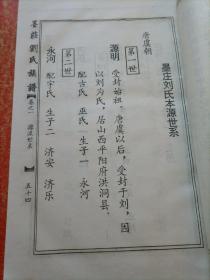 墨庄刘氏本源世系
唐虞朝
第一世
源明 受封始祖。唐虞以后，受封于刘，因
以刘为氏，居山西平阳府洪洞县。
配古氏 巫氏 生子一 永河
第二世
永河 配宇氏 生子二 济安 济乐
墨莊劉氏族譜 卷之一 源流世系 五十四